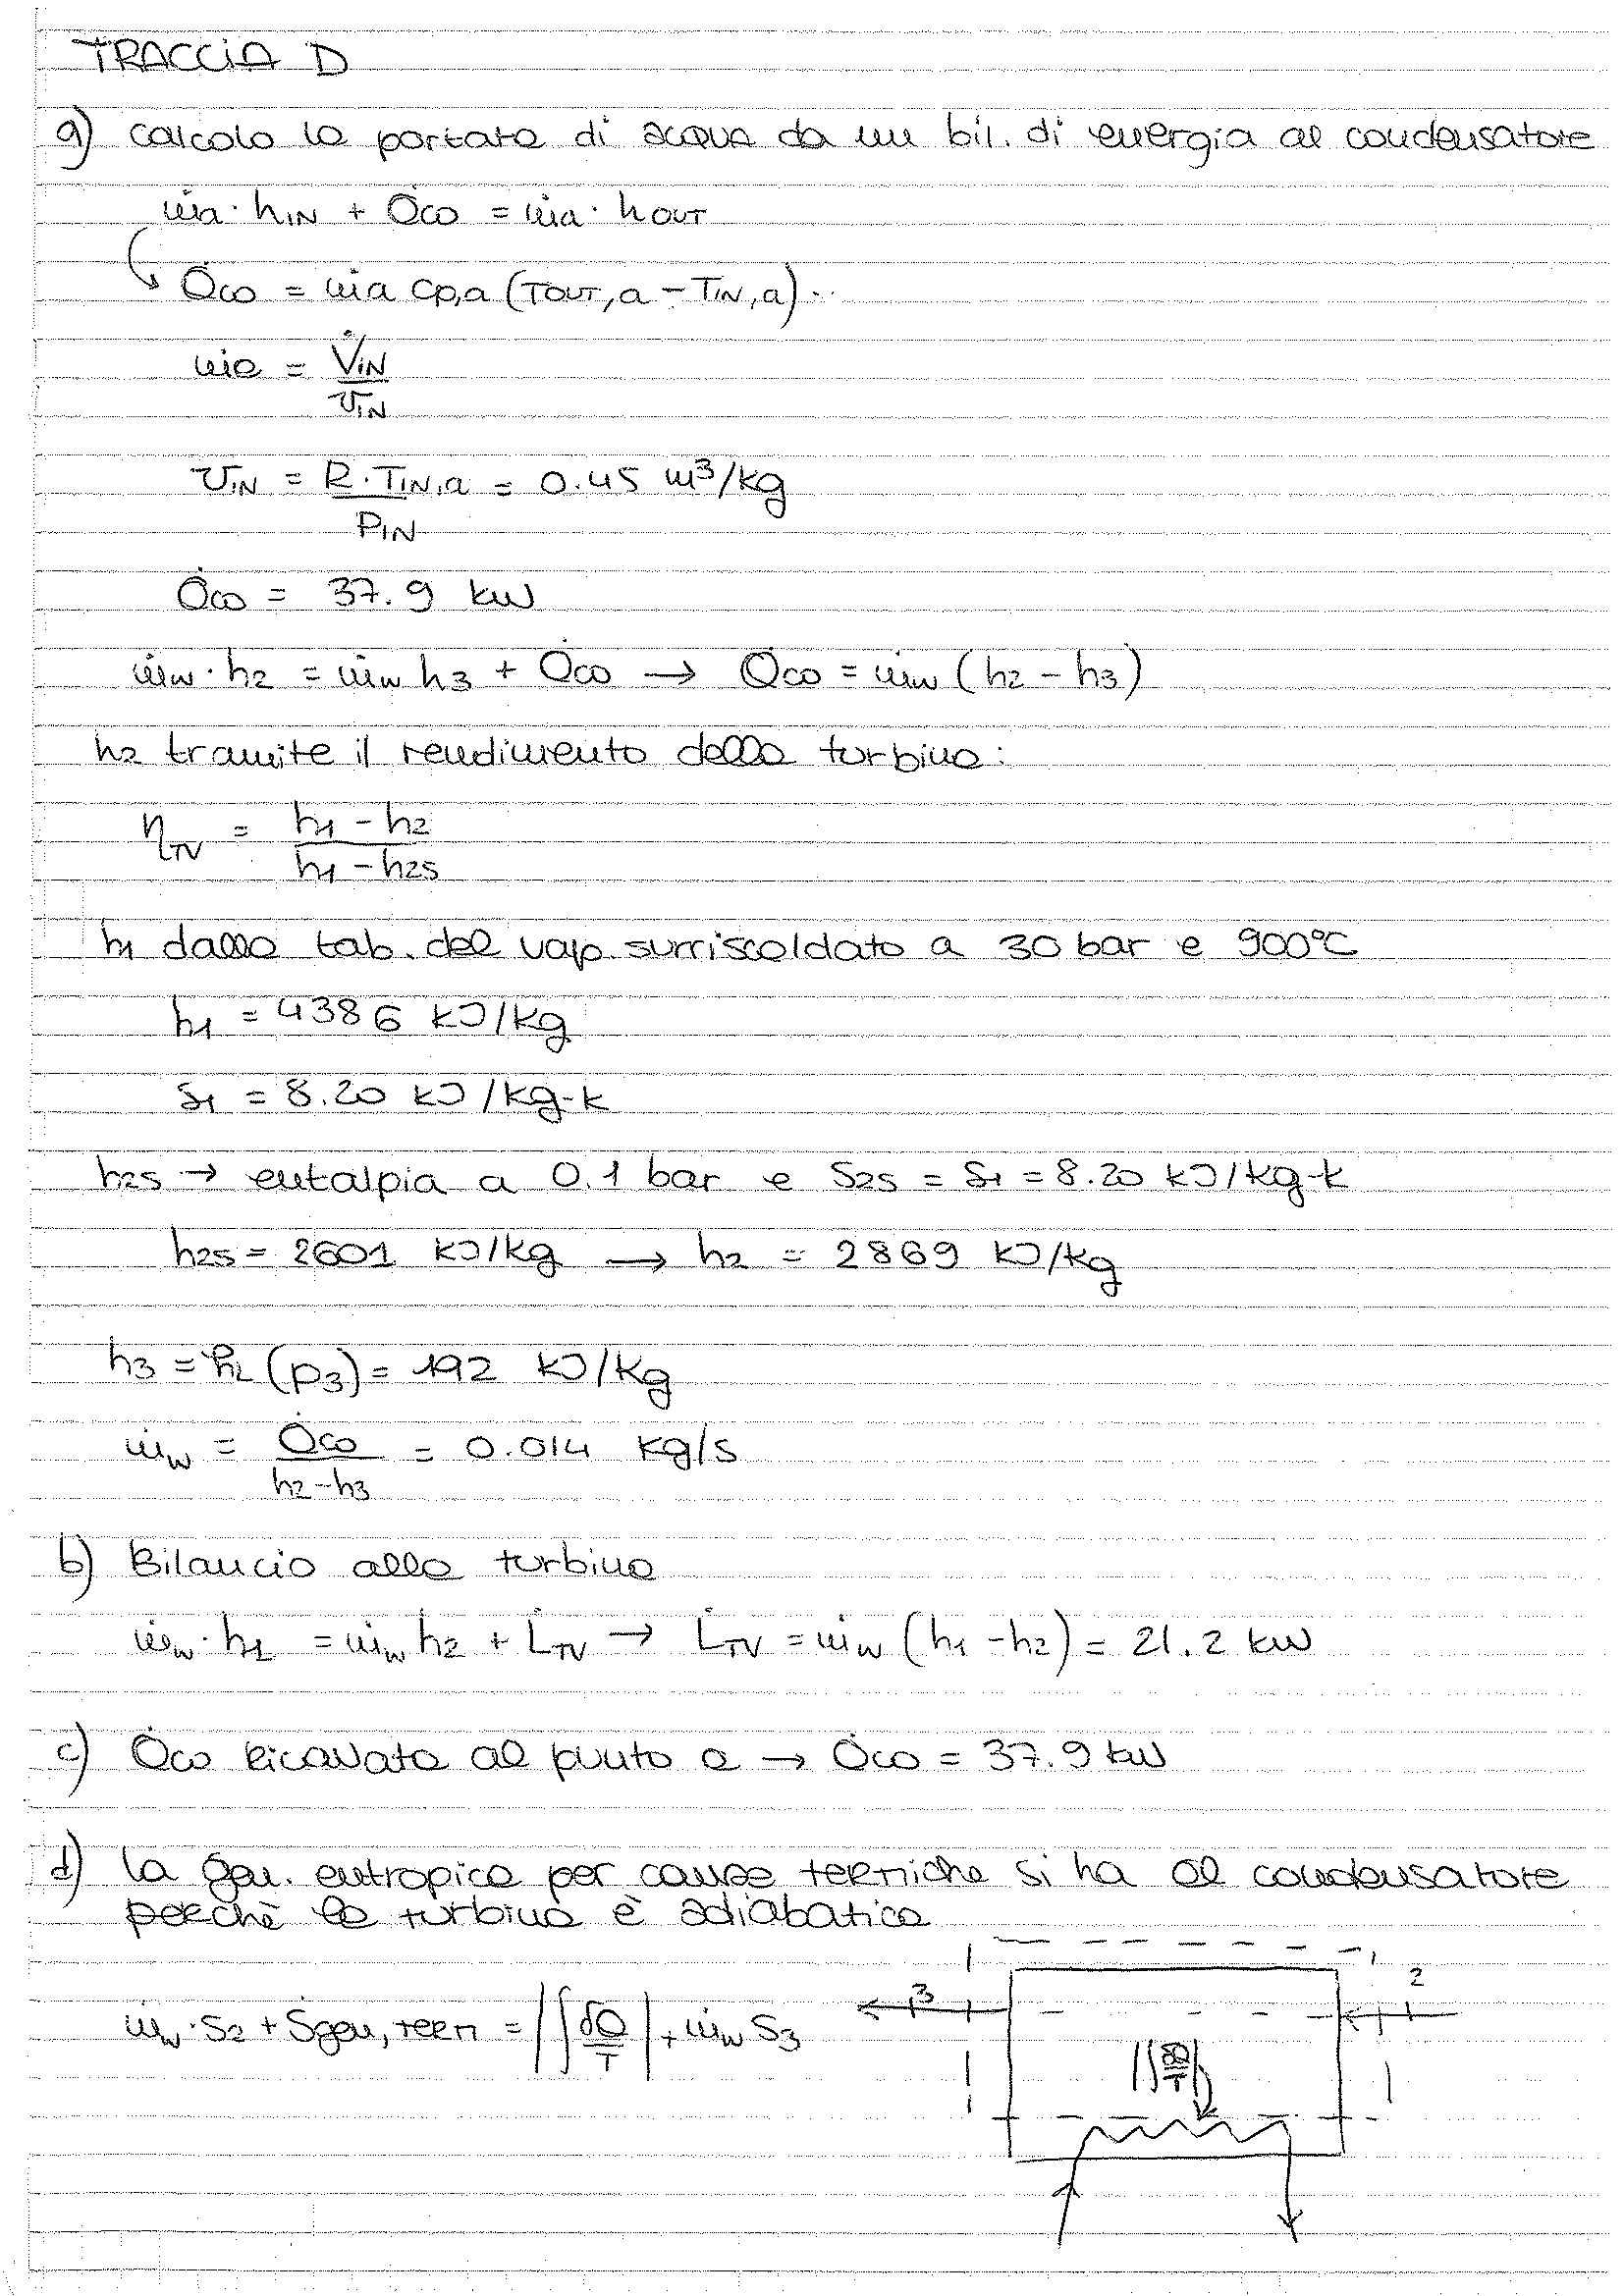 TRACCIA D
a) calcolo la portata di acqua da un bil. di energia al condensatore
ṁa · hIN + Q̇co = ṁa · hOUT
Q̇co = ṁa cp,a (TOUT,a − TIN,a)
ṁa = V̇IN / vIN
vIN = R · TIN,a / PIN = 0.45 m³/kg
Q̇co = 37.9 kW
ṁw · h2 = ṁw h3 + Q̇co → Q̇co = ṁw (h2 − h3)
h2 tramite il rendimento della turbina:
ηTV = (h1 − h2) / (h1 − h2s)
h1 dalla tab. del vap. surriscaldato a 30 bar e 900°C
h1 = 4386 kJ/kg
s1 = 8.20 kJ/kg-k
h2s → entalpia a 0.1 bar e s2s = s1 = 8.20 kJ/kg-k
h2s = 2601 kJ/kg → h2 = 2869 kJ/kg
h3 = hL (p3) = 192 kJ/kg
ṁw = Q̇co / (h2 − h3) = 0.014 kg/s
b) Bilancio alla turbina
ṁw · h1 = ṁw h2 + L̇TV → L̇TV = ṁw (h1 − h2) = 21.2 kW
c) Q̇co ricavata al punto a → Q̇co = 37.9 kW
d) la gen. entropica per cause termiche si ha al condensatore
perchè la turbina è adiabatica
3 2
ṁw · s2 + Ṡgen, term = |∫ δQ̇/T| + ṁw s3
|∫ δQ̇/T|